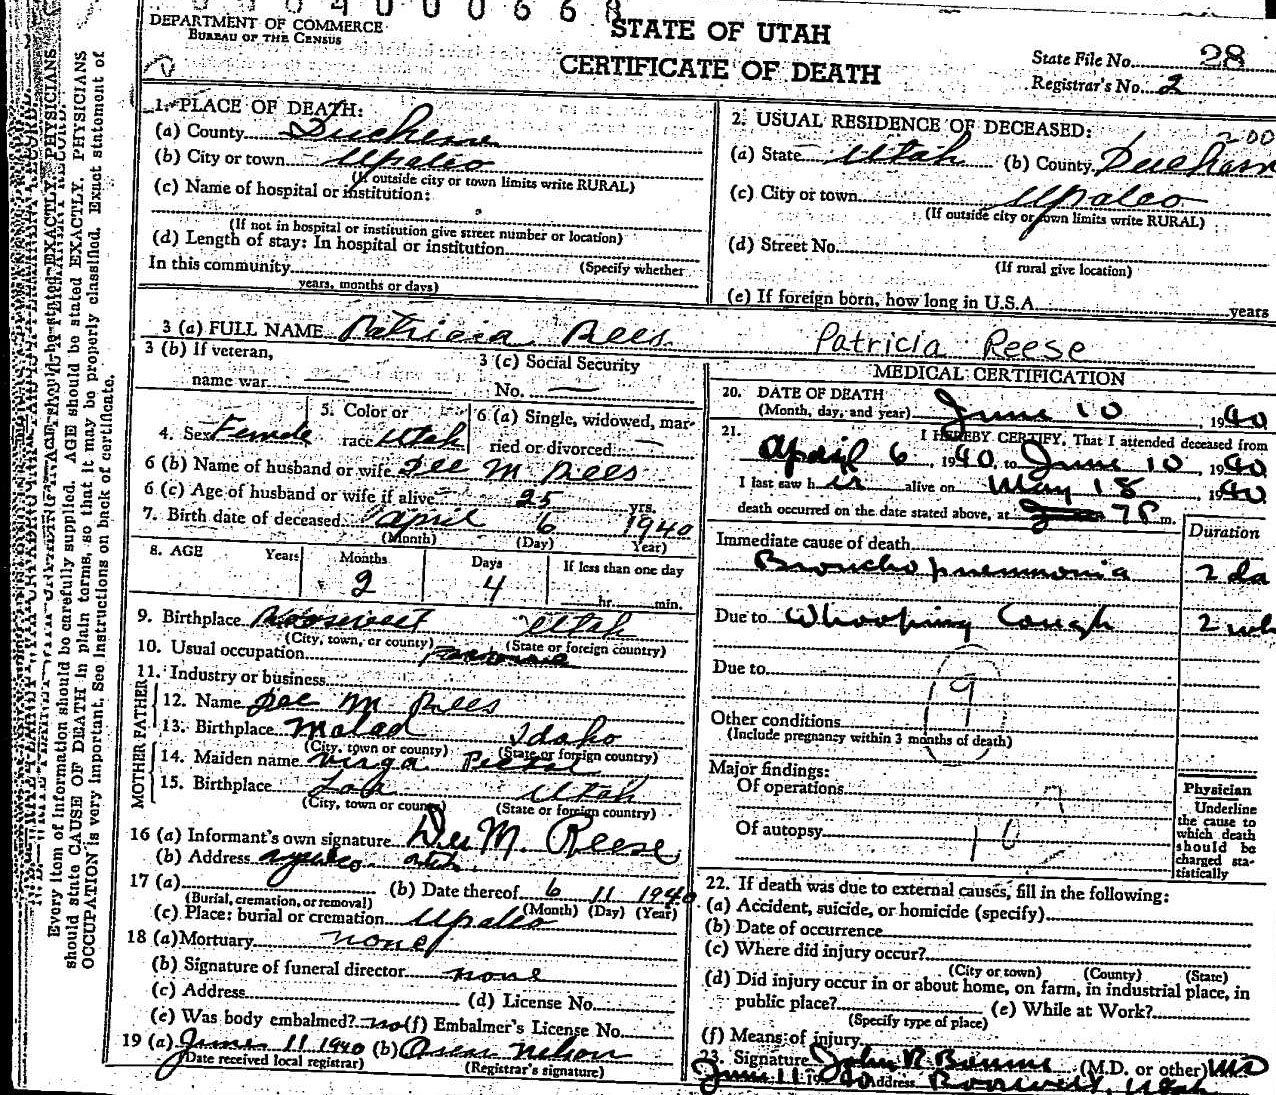 0 4 0 0 0 6 6 8
DEPARTMENT OF COMMERCE
BUREAU OF THE CENSUS
STATE OF UTAH
CERTIFICATE OF DEATH
State File No. 28
Registrar's No. 2
1. PLACE OF DEATH:
(a) County Duchesne
(b) City or town Upalco
(If outside city or town limits write RURAL)
(c) Name of hospital or institution:
(If not in hospital or institution give street number or location)
(d) Length of stay: In hospital or institution
(Specify whether
In this community
years, months or days)
2. USUAL RESIDENCE OF DECEASED:
(a) State Utah (b) County
(c) City or town Upalco
(If outside city or town limits write RURAL)
(d) Street No.
(If rural give location)
(e) If foreign born, how long in U.S.A. years
3 (a) FULL NAME Patricia Rees Patricia Reese
3 (b) If veteran,
name war —
3 (c) Social Security
No. —
4. Sex Female
5. Color or
race Utah
6 (a) Single, widowed, mar-
ried or divorced —
6 (b) Name of husband or wife Dee M Rees
6 (c) Age of husband or wife if alive 25 yrs.
7. Birth date of deceased April 6 1940
(Month) (Day) Year)
8. AGE Years Months Days If less than one day
2 4 hr. min.
9. Birthplace Roosevelt Utah
(City, town, or county) (State or foreign country)
10. Usual occupation
11. Industry or business
FATHER
12. Name Dee M Rees
13. Birthplace Malad Idaho
(City, town or county) (State or foreign country)
MOTHER
14. Maiden name Virga
15. Birthplace Utah
(City, town or county) (State or foreign country)
16 (a) Informant's own signature Dee M. Reese
(b) Address
17 (a) (b) Date thereof 6 11 1940
(Burial, cremation, or removal) (Month) (Day) (Year)
(c) Place: burial or cremation Upalco
18 (a) Mortuary none
(b) Signature of funeral director none
(c) Address (d) License No.
(e) Was body embalmed? no (f) Embalmer's License No.
19 (a) June 11 1940 (b) Oscar Nelson
(Date received local registrar) (Registrar's signature)
MEDICAL CERTIFICATION
20. DATE OF DEATH
(Month, day, and year) June 10, 1940
21. I HEREBY CERTIFY, That I attended deceased from
April 6, 1940, to June 10, 1940
I last saw her alive on May 18, 1940
death occurred on the date stated above, at 7 P m.
Duration
Immediate cause of death
Bronchopneumonia 2 da
Due to Whooping Cough 2 wk
Due to
9
Other conditions
(Include pregnancy within 3 months of death)
Major findings:
Of operations
Of autopsy
Physician
Underline
the cause to
which death
should be
charged sta-
tistically
22. If death was due to external causes, fill in the following:
(a) Accident, suicide, or homicide (specify)
(b) Date of occurrence
(c) Where did injury occur?
(City or town) (County) (State)
(d) Did injury occur in or about home, on farm, in industrial place, in
public place? (e) While at Work?
(Specify type of place)
(f) Means of injury
23. Signature John R. (M.D. or other) MD
June 11 1940 Address Roosevelt, Utah
Every item of information should be carefully supplied. AGE should be stated EXACTLY. PHYSICIANS
should state CAUSE OF DEATH in plain terms, so that it may be properly classified. Exact statement of
OCCUPATION is very important. See instructions on back of certificate.